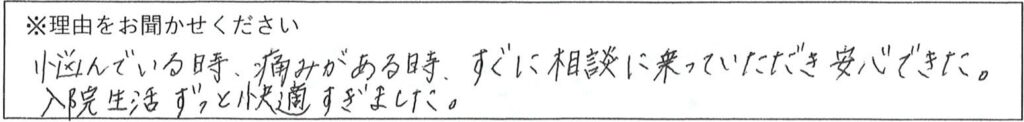 ※理由をお聞かせください
悩んでいる時、痛みがある時、すぐに相談に乗っていただき安心できた。
入院生活ずっと快適すぎました。